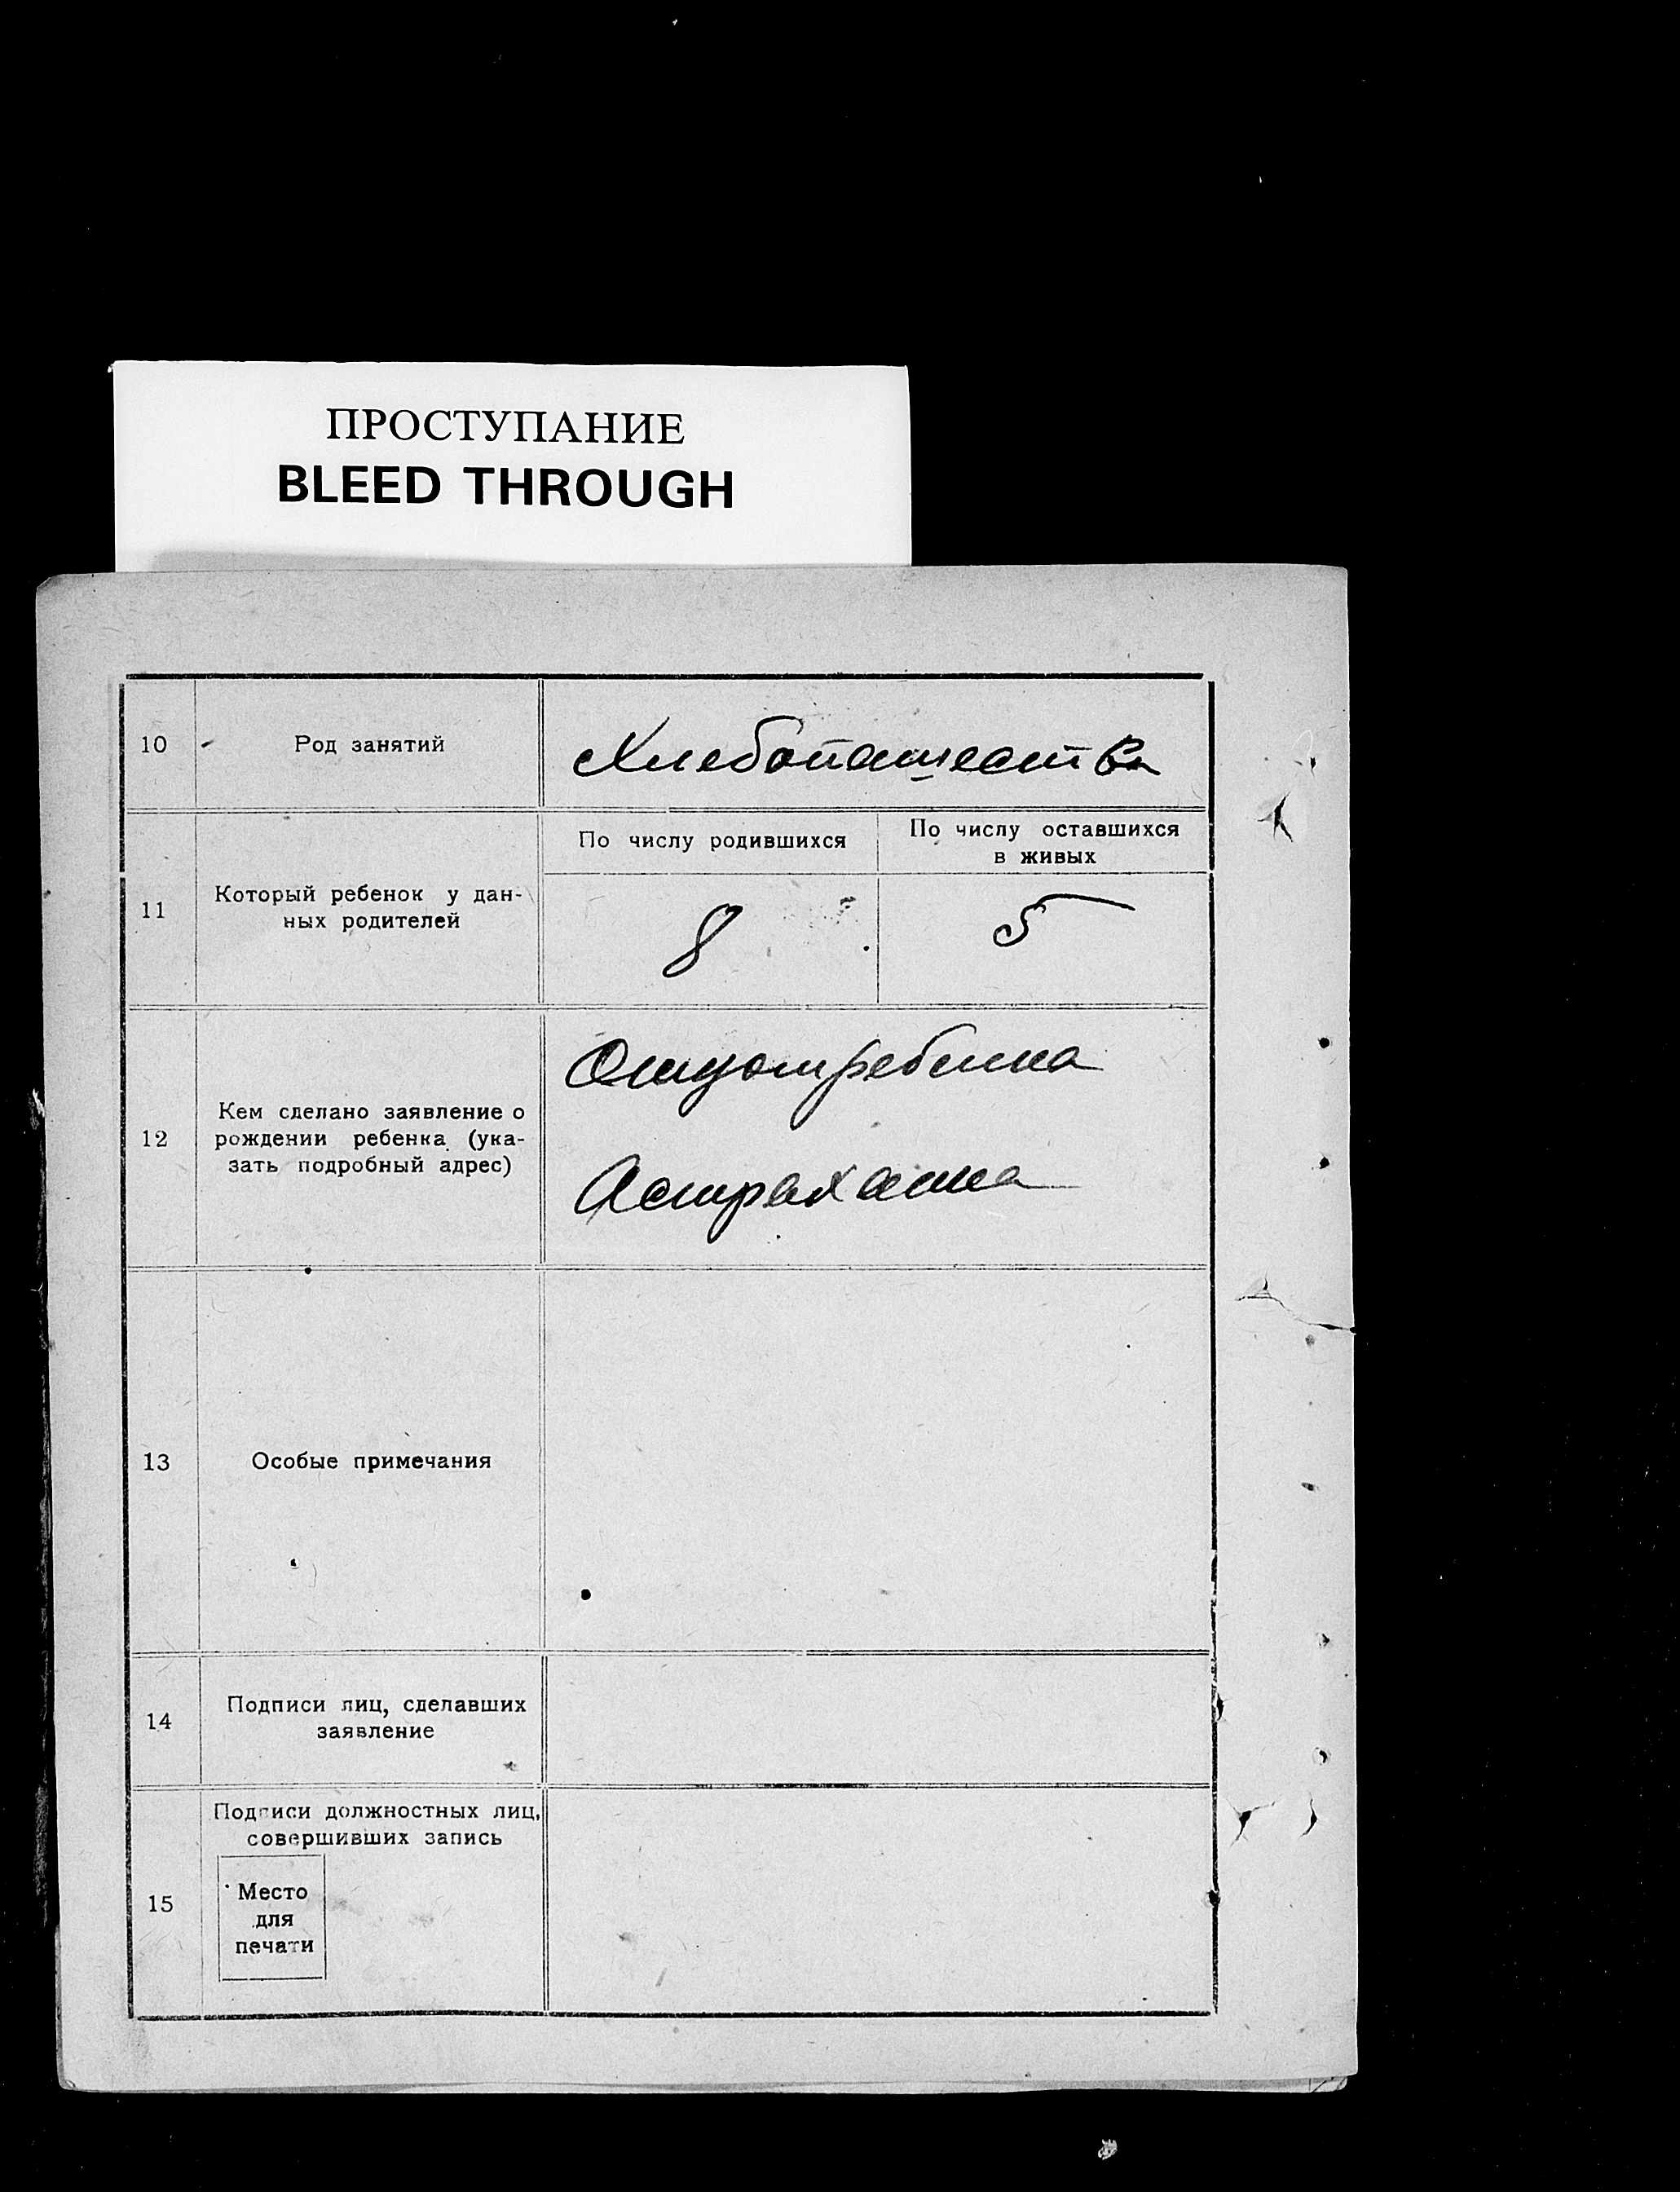 ПРОСТУПАНИЕ
BLEED THROUGH
10
Род занятий
Хлебопашество
11
Который ребенок у дан-
ных родителей
По числу родившихся
По числу оставшихся
в живых
8
5
12
Кем сделано заявление о
рождении ребенка (ука-
зать подробный адрес)
Отцом ребенка
Астраханка
13
Особые примечания
14
Подписи лиц, сделавших
заявление
15
Подписи должностных лиц,
совершивших запись
Место
для
печати